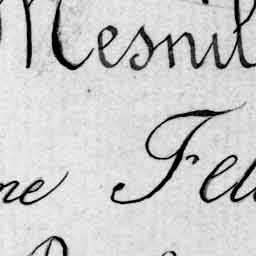 Mesnil
ne Fel